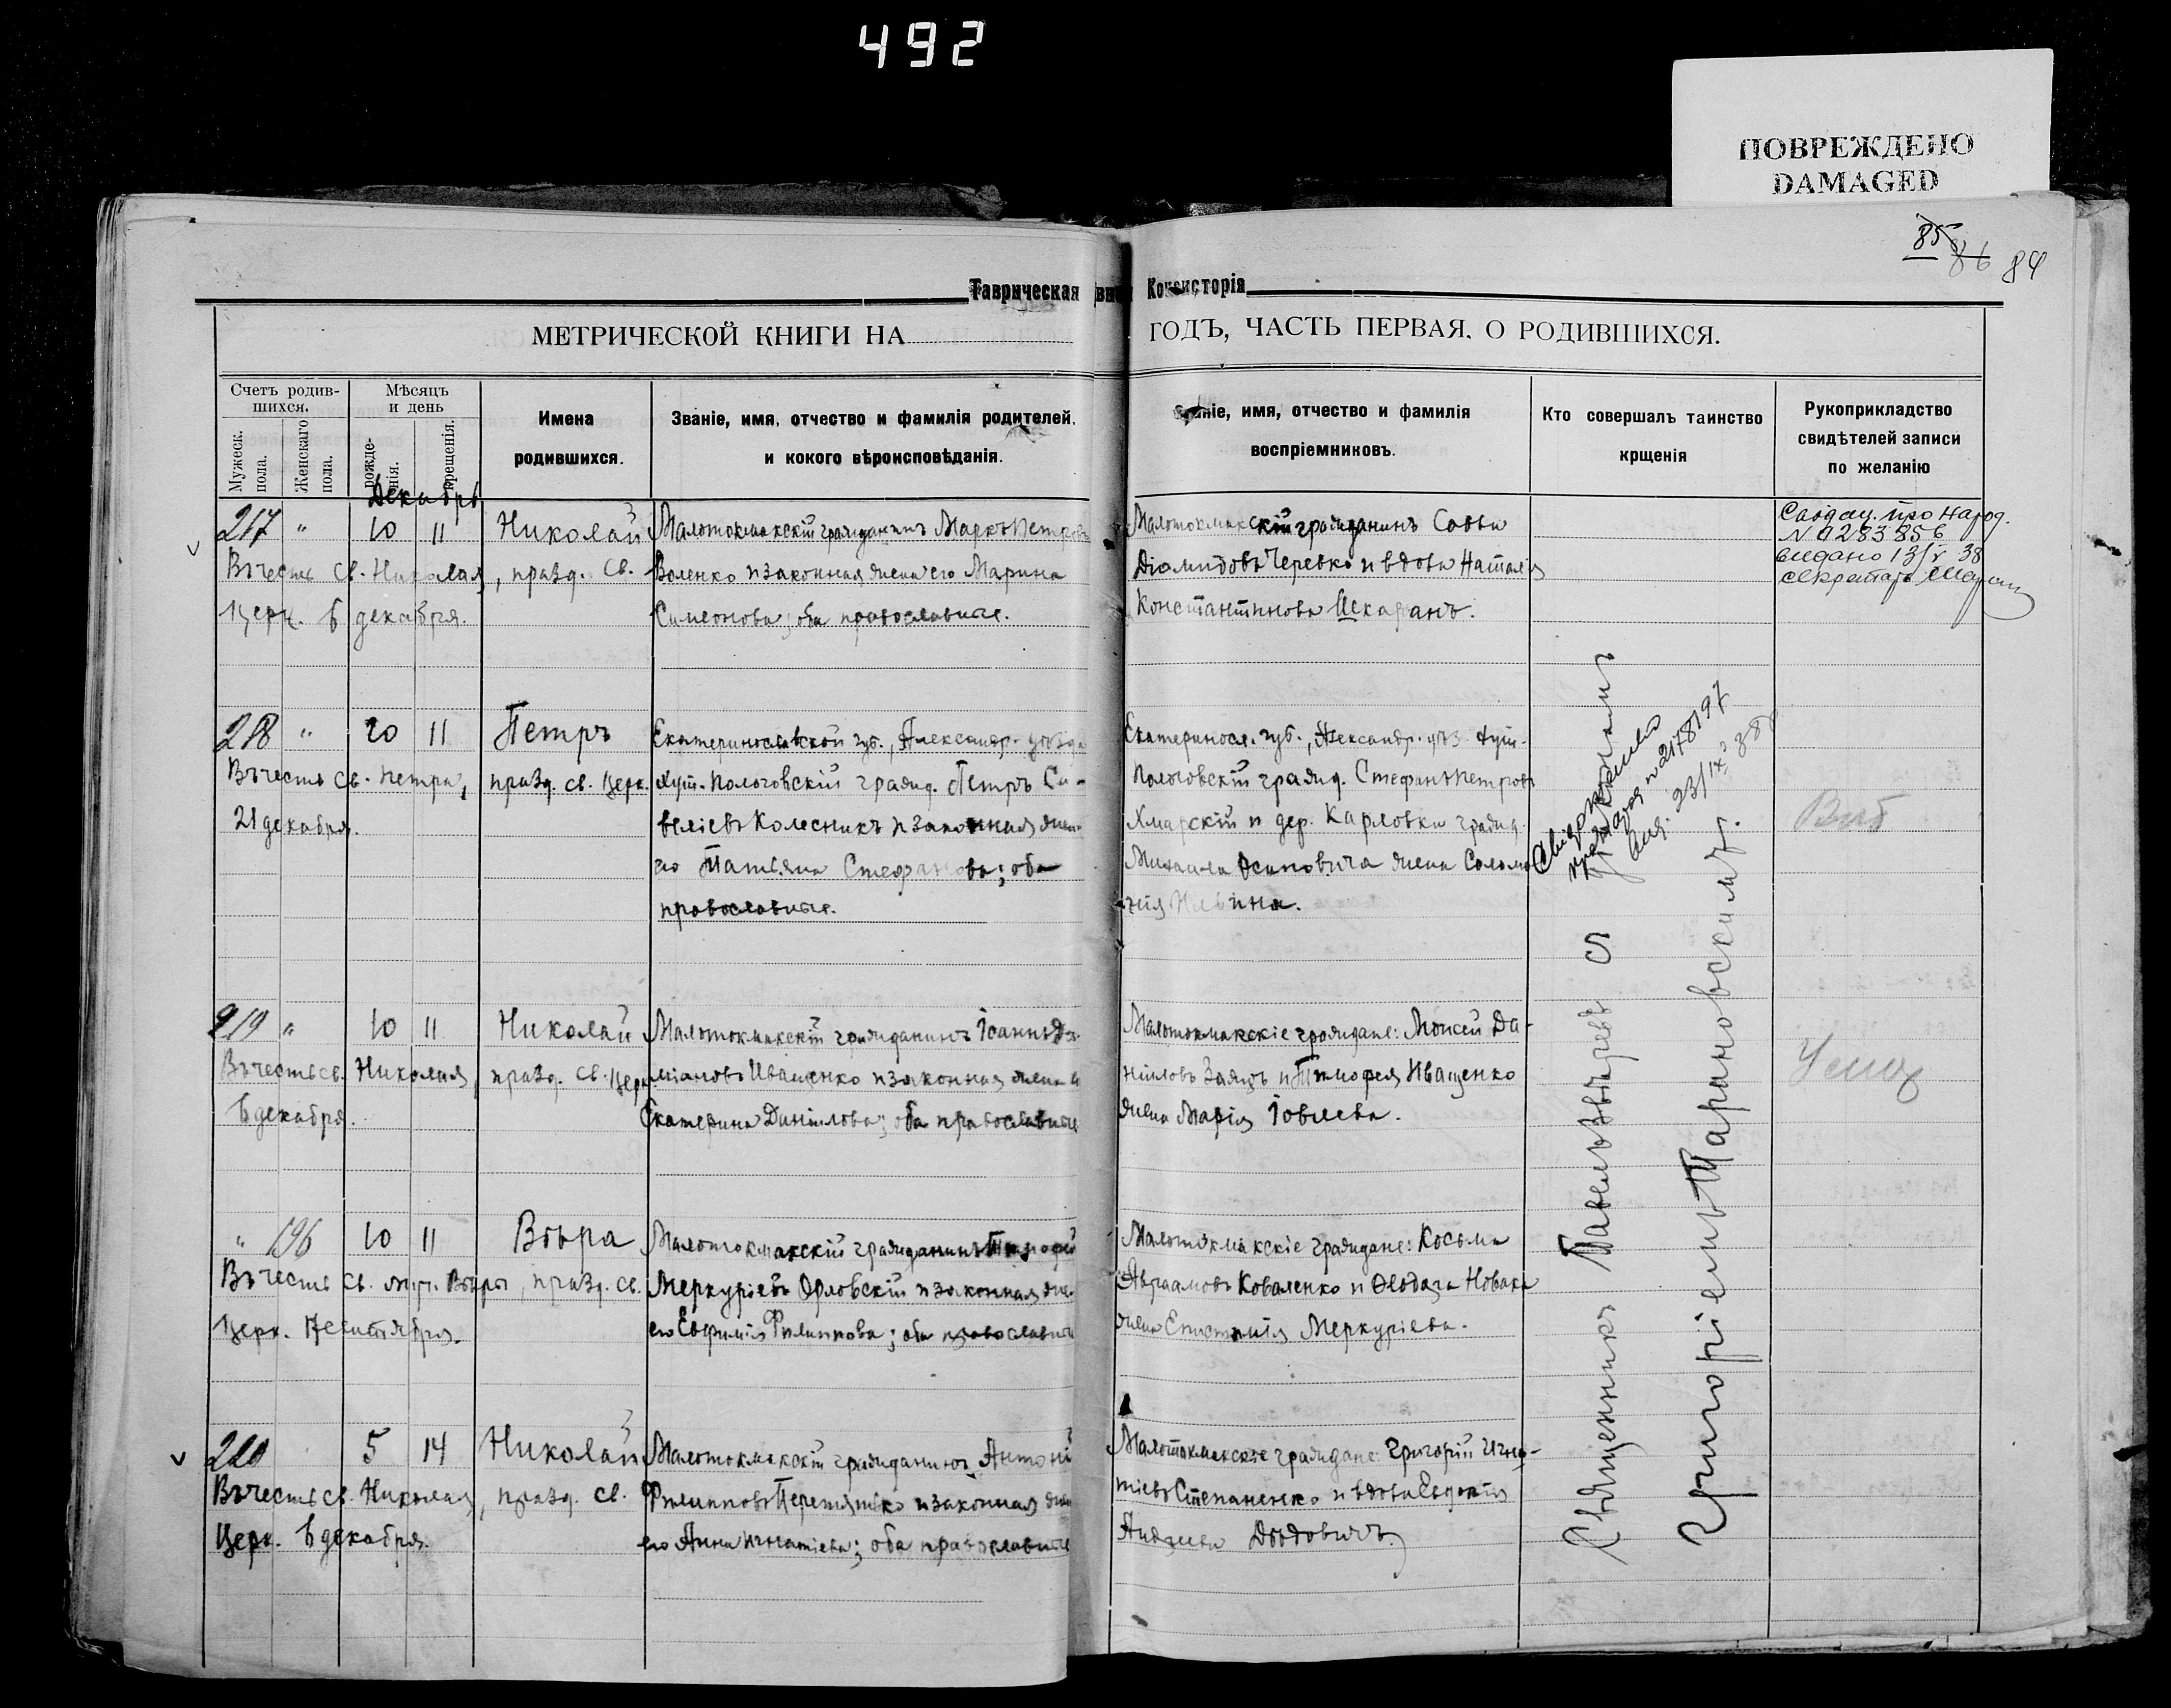 492
ПОВРЕЖДЕНО
DAMAGED
85 86 84
Таврическая Консисторія
МЕТРИЧЕСКОЙ КНИГИ НА ГОДЪ, ЧАСТЬ ПЕРВАЯ, О РОДИВШИХСЯ.
Счетъ родив-
шихся.
Мужеск.
пола.
Женскаго
пола.
Мѣсяцъ
и день
рожде-
нія.
крещенія.
Имена
родившихся.
Званіе, имя, отчество и фамилія родителей,
и кокого вѣроисповѣданія.
Званіе, имя, отчество и фамилія
воспріемниковъ.
Кто совершалъ таинство
крщенія
Рукоприкладство
свидѣтелей записи
по желанію
Декабрь
217 " 10 11 Николай
Въ честь св. Николая, празд. св.
Церк. 6 декабря.
Малотокмакскій гражданинъ Маркъ Петровъ
Воленко и законная жена его Марина
Симеонова; оба православные.
Малотокмакскій гражданинъ Савва
Діомидовъ Черевко и вдова Наталія
Константинова
про народ.
N 0283856
видано 13/V 38
секретарь
218 " 20 11 Петръ
Въ честь св. Петра, празд. св. Церк.
21 декабря.
Екатеринославской губ., Александр. уѣзда
хут. Пологовскій гражд. Петръ Са-
веліевъ Колесникъ и законная жена
его Татьяна Стефанова; оба
православные.
Екатеринос. губ., Александр. уѣз. хут.
Пологовскій гражд. Стефанъ Петровъ
Хмарскій и дер. Карловки гражд.
Михаила Осиповича жена Соломо-
нія Ильина.
N 2178197
23/IX 38
219 " 10 11 Николай
Въ честь св. Николая, празд. св. Церк.
6 декабря.
Малотокмакскій гражданинъ Іоаннъ Да-
міановъ Иващенко и законная жена
Екатерина Даніилова; оба православные
Малотокмакскіе граждане: Моисей Да-
ніиловъ Заяцъ и Тимофея Иващенко
жена Марія Іовлева.
" 196 10 11 Вѣра
Въ честь св. муч. Вѣры, празд. св.
Церк. сентября.
Малотокмакскій гражданинъ Тимофей
Меркуріевъ Орловскій и законная жена
его Евфимія Филиппова; оба православные
Малотокмакскіе граждане: Косьма
Авраамовъ Коваленко и Ѳеодота Новака
жена Епистимія Меркуріева.
220 5 14 Николай
Въ честь св. Николая, празд. св.
Церк. 6 декабря.
Малотокмакскій гражданинъ Антоній
Филипповъ Перетятько и законная жена
его Анна Игнатіева; оба православные
Малотокмакскіе граждане: Григорій Игна-
тіевъ Степаненко и вдова Евдокія
Андреева Дѣдовичъ.
Священникъ Павелъ Звѣревъ съ псаломщ.
Григоріемъ Тарановскимъ.